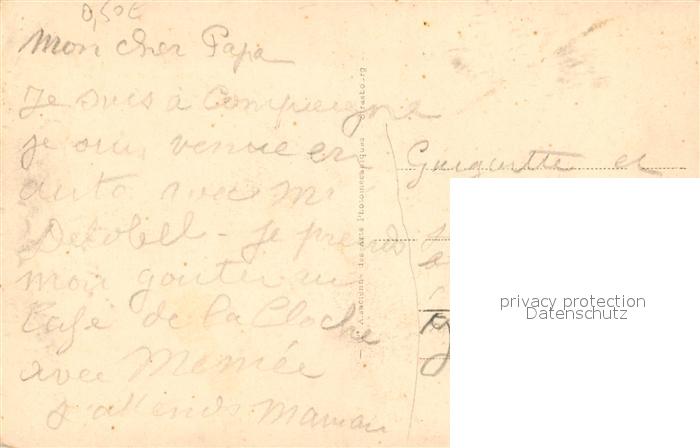 0,50€
Mon cher Papa
Je suis à Compiegne
je suis venue en
auto avec Mr
Delobell - je prends
mon gouter au
Café de la Cloche
avec Memée
J'attends Maman
Alsacienne des Arts Photomécaniques Strasbourg
Guiguitte et
privacy protection
Datenschutz